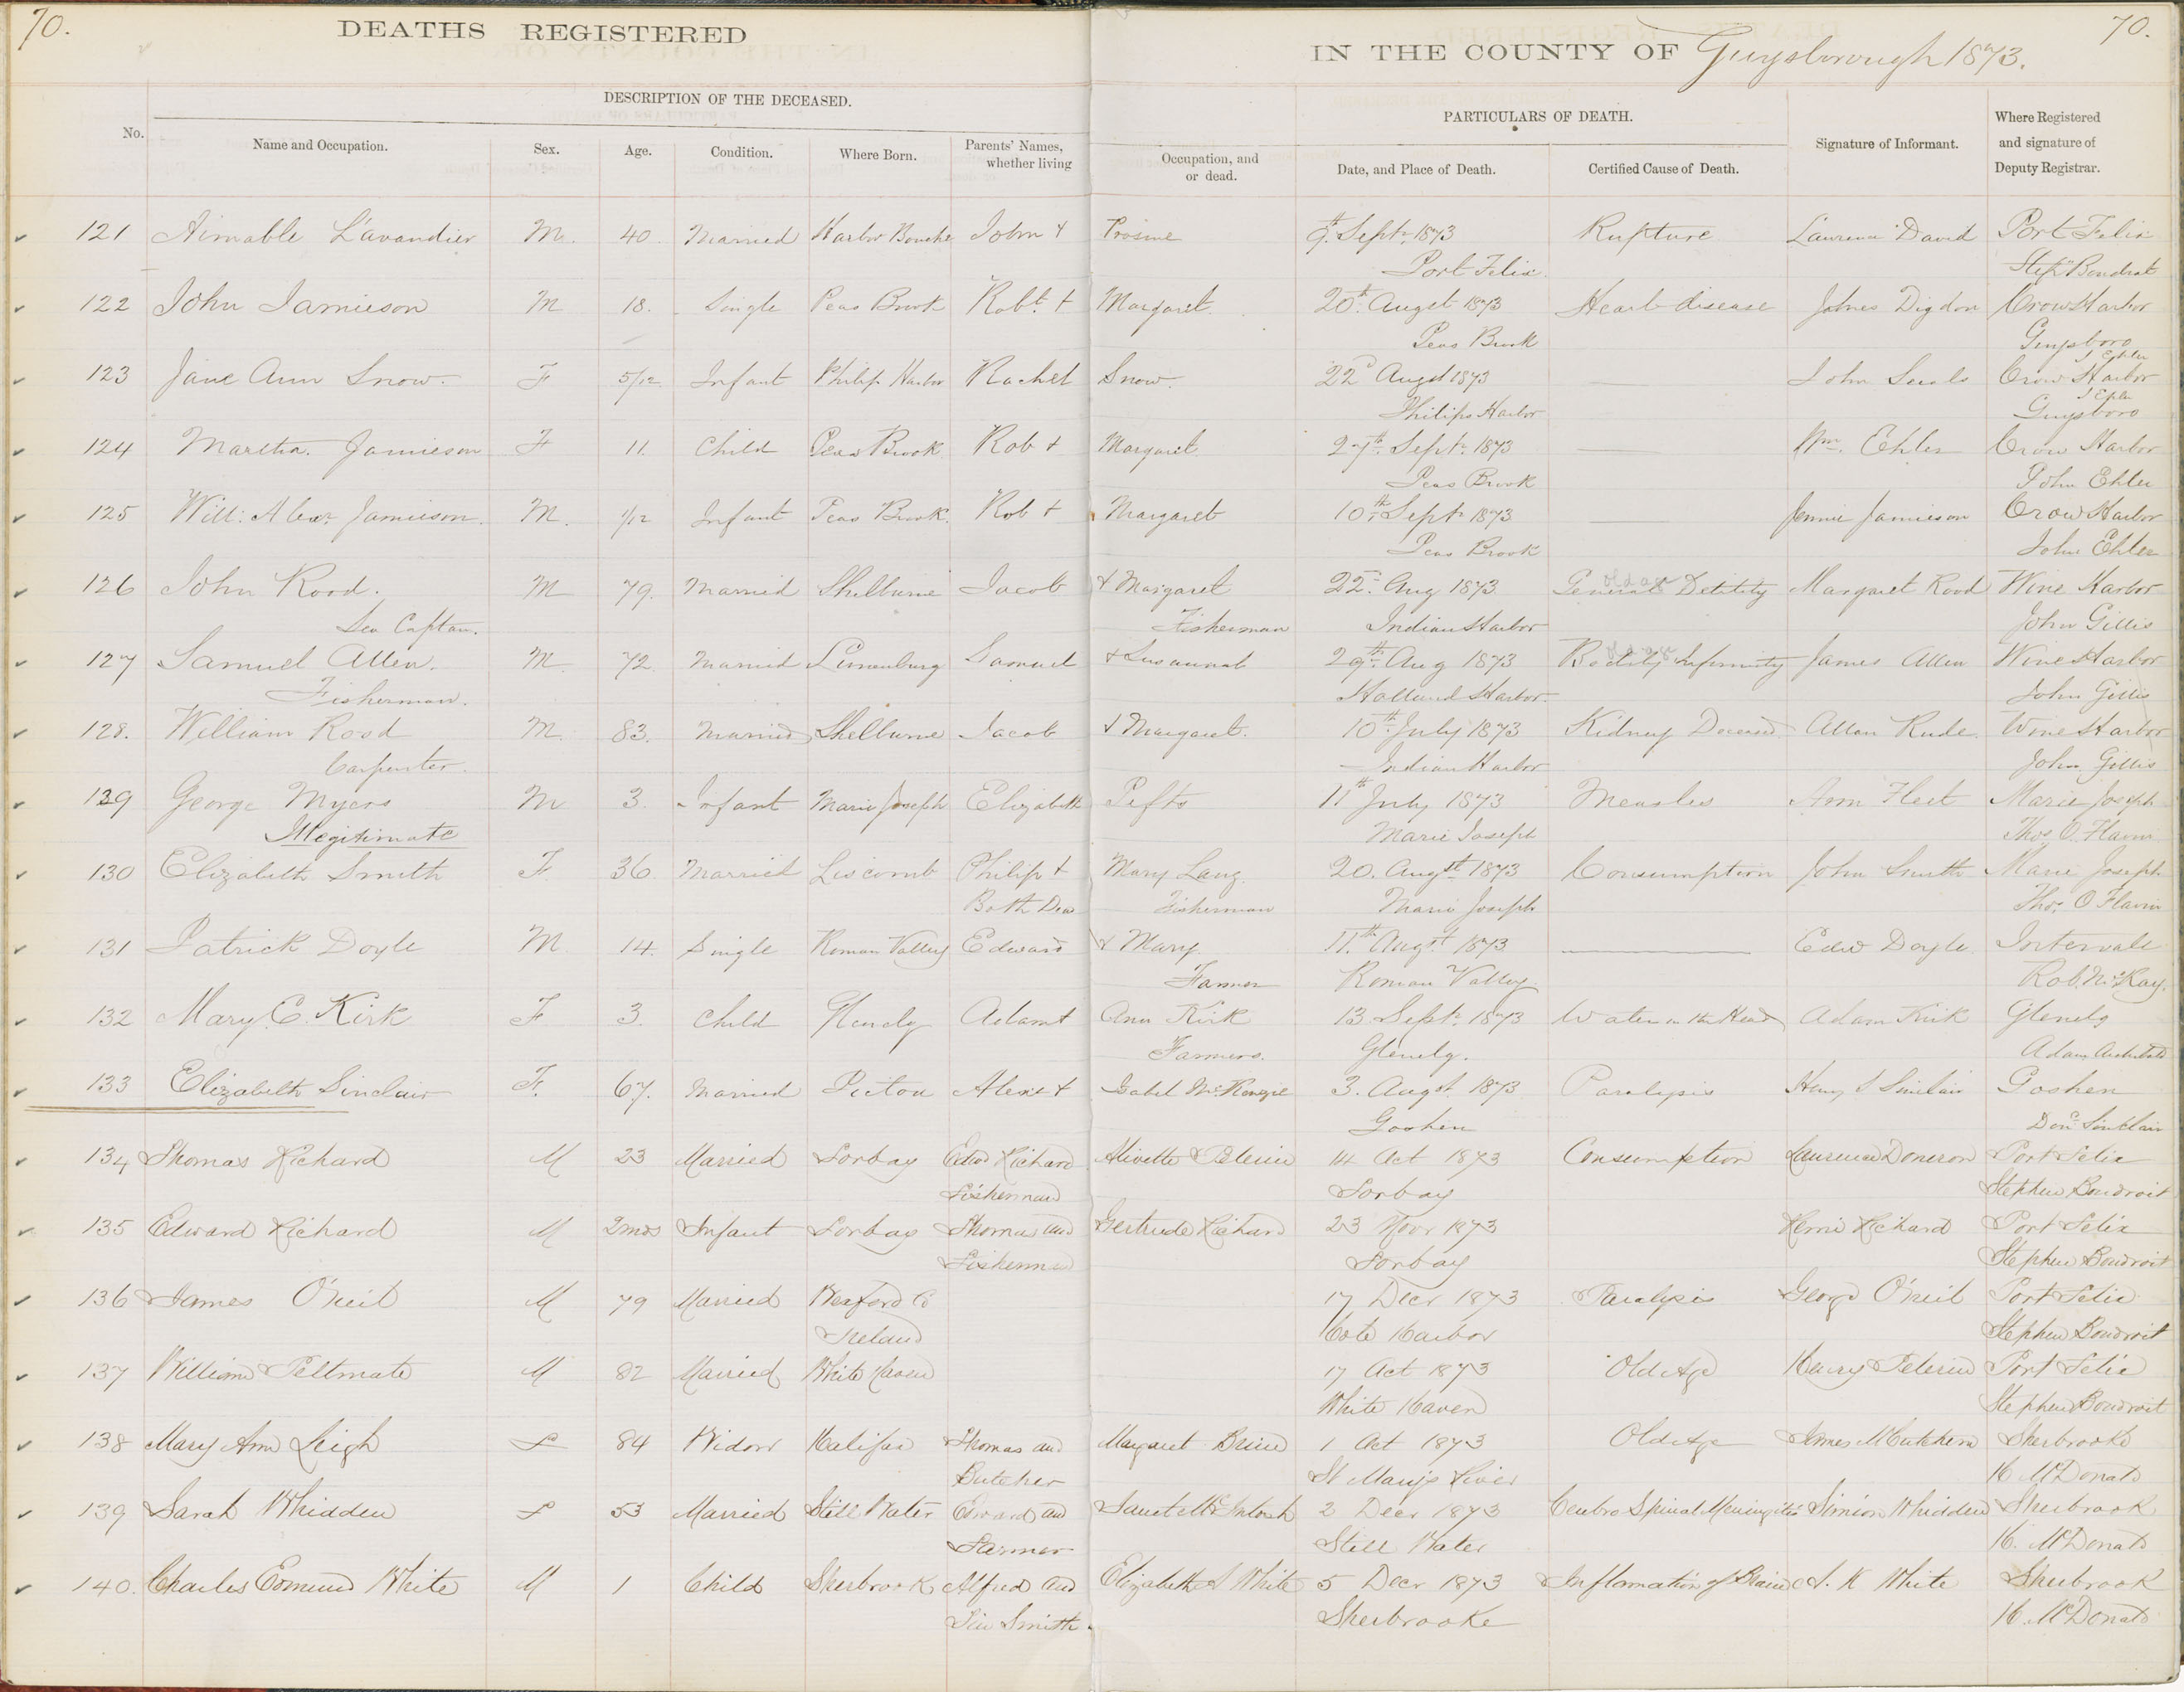 70.
DEATHS REGISTERED
IN THE COUNTY OF Guysborough 1873.
70.
DESCRIPTION OF THE DECEASED.
PARTICULARS OF DEATH.
No.
Name and Occupation.
Sex.
Age.
Condition.
Where Born.
Parents' Names, whether living
Occupation, and or dead.
Date, and Place of Death.
Certified Cause of Death.
Signature of Informant.
Where Registered and signature of Deputy Registrar.
121 Aimable Lavandier M. 40. Married Harbor Bouche John + 9th Sept. 1873 Rupture Laurence David Port Felix
Port Felix.
122 John Jamieson M 18. Single Peas Brook Robt. + Margaret 20th Augst 1873 Heart disease James Digdon Crow Harbor
Peas Brook Guysboro
J Ehler
123 Jane Ann Snow. F 5/12 Infant Philip Harbor Rachel Snow. 22d Augst 1873 John Crow Harbor
Philips Harbor Guysboro
J Ehler
124 Martha. Jamieson F 11. Child Peas Brook Rob + Margaret 27th Sept. 1873 Wm. Ehler Crow Harbor
Peas Brook John Ehler
125 Will: Alexr Jamieson. M. 1/12 Infant Peas Brook. Rob + Margaret 10th Sept 1873 Jennie Jamieson Crow Harbor
Peas Brook John Ehler
126 John Rood. M 79. Married Shelburne Jacob + Margaret 22d Aug 1873 General Debility Margaret Rood Wine Harbor
old age
Sea Captan. Fisherman Indian Harbor John Gillis
127 Samuel Allen. M 72. Married Lunenburg Samuel + Susannah 29th Aug 1873 Bodily Infirmity James Allen Wine Harbor
Fisherman. Holland Harbor. John Gillis
128. William Rood M. 83. Married Shelburne Jacob + Margaret. 10th July 1873 Kidney Deceased Allan Rude. Wine Harbor
Carpenter. Indian Harbor John Gillis
129 George Myers M 3. Infant Marie Joseph Elizabeth 11th July 1873 Measles Ann Fleet Marie Joseph
Illegitimate Marie Joseph Thos O. Flavin
130 Elizabeth Smith F. 36. Married Liscomb Philip + Mary Lang. 20. Augst 1873 Consumption John Smith Marie Joseph
Both Dea Fisherman Marie Joseph Thos. O Flavin
131 Patrick Doyle M 14. Single Roman Valley Edward + Mary. 11th Augst 1873 Edw Doyle Intervale
Farmer Roman Valley Rob. McKay.
132 Mary. C. Kirk F 3. Child Glenelg Adam + Ann Kirk 13. Sept. 1873 Water in the Head Adam Kirk Glenelg
Farmers. Glenelg. Adam Archibald
133 Elizabeth Sinclair F. 67. Married Pictou Alexr + Isabel McKenzie 3. Augst. 1873 Paralysis Henry S Sinclair Goshen
Goshen Donc. Sinklair
134 Thomas Richard M 23 Married Torbay Edwd Richard 14 Oct 1873 Consumption Port Felix
Fisherman Torbay Stephen Boudroit
135 Edward Richard M 2mos Infant Torbay Thomas and Gertrude Richard 23 Novr 1873 Richard Port Felix
Fisherman Torbay Stephen Boudroit
136 James O'neil M 79 Married Wexford Co 17 Decr 1873 Paralysis George O'neil Port Felix
Ireland Cote Harbor Stephen Boudroit
137 William Peltmate M 82 Married White Haven 17 Oct 1873 Old Age Henry Peterie Port Felix
White Haven Stephen Boudroit
138 Mary Ann Leigh F 84 Widow Halifax Thomas and Margaret 1 Oct 1873 Old Age James McCutcheon Sherbrooke
Butcher St Marys River H McDonald
139 Sarah Whidden F 53 Married Still Water Edward and Janet McIntosh 2 Decr 1873 Cerebro Spinal Meningitis Simion Whidden Sherbrook
Farmer Still Water H. McDonald
140. Charles Edmund White M 1 Child Sherbrook Alfred and Elizabeth A White 5 Decr 1873 Inflamation of Brain A. K White Sherbrook
Tin Smith. Sherbrooke H. McDonald